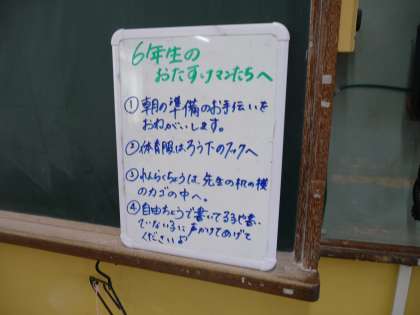 6年生の
おたすけマンたちへ
① 朝の準備のお手伝いを
おねがいします。
② 体育服はろう下のフックへ
③ れんらくちょうは、先生の机の横
のカゴの中へ。
④ 自由ちょうで書いてる子や書い
ていない子に声かけてあげて
くださいよ